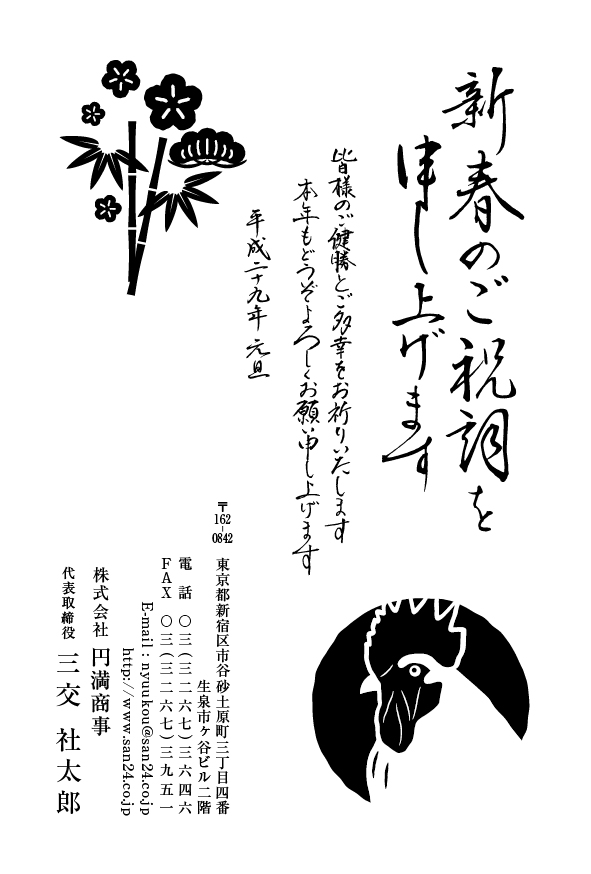 新春のご祝詞を
申し上げます
皆様のご健勝とご多幸をお祈りいたします
本年もどうぞよろしくお願い申し上げます
平成二十九年 元旦
〒162-0842
東京都新宿区市谷砂土原町三丁目四番
生泉市ヶ谷ビル二階
電話 〇三(三二六七)三六四六
FAX 〇三(三二六七)三九五一
E-mail：nyuukou@san24.co.jp
http://www.san24.co.jp
株式会社 円満商事
代表取締役 三交 社太郎